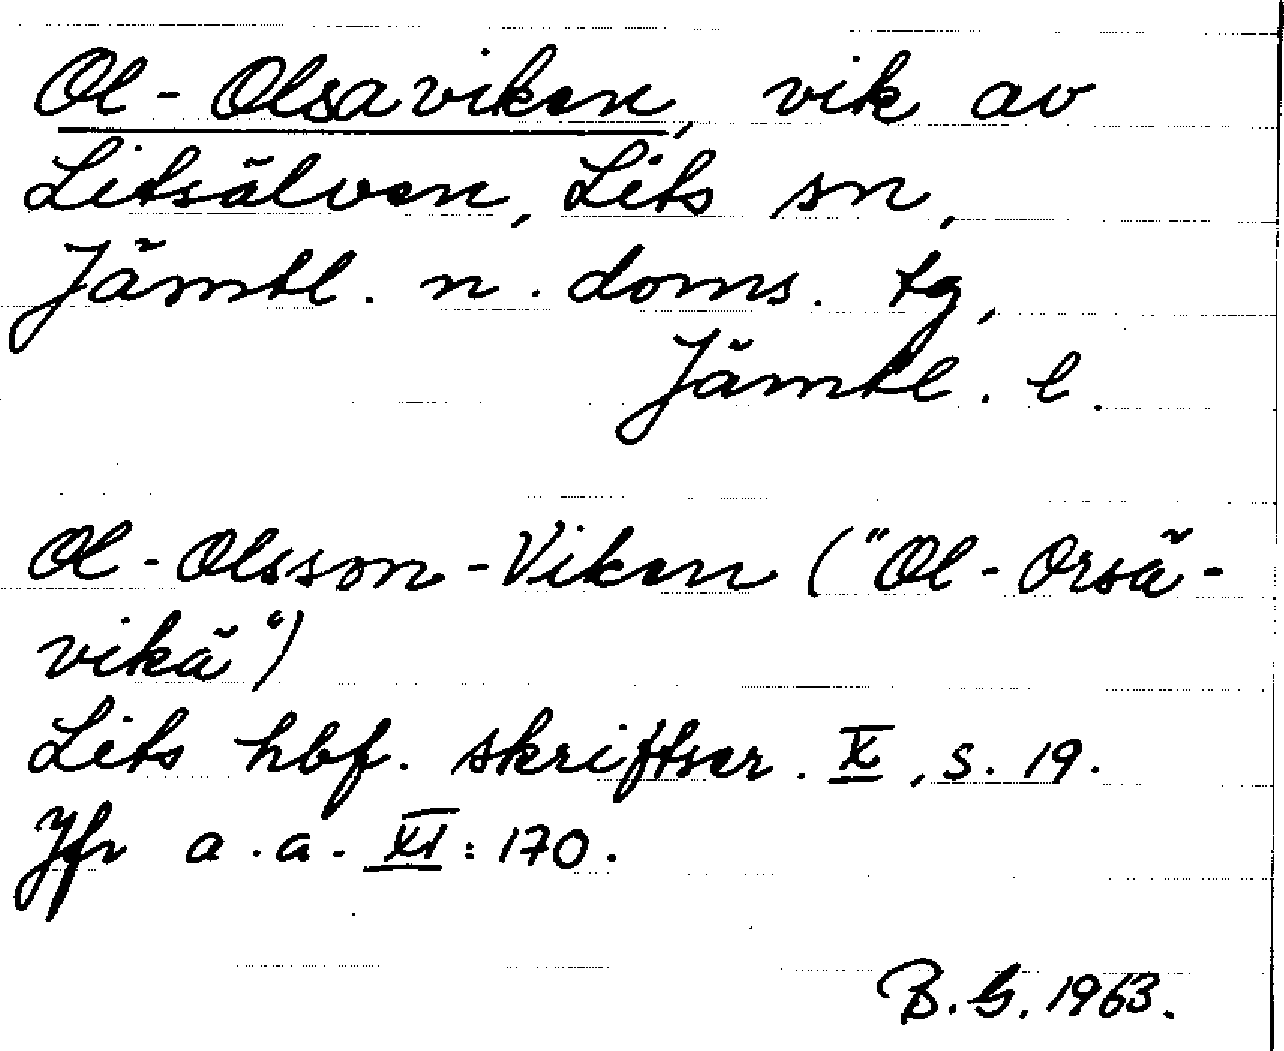 Ol-Olsaviken, vik av
Litsälven, Lits sn,
Jämtl. n. doms. tg,
Jämtl. l.
Ol-Olsson-Viken ("Ol-Orsä-
vikä")
Lits hbf. skriftser. X, s. 19.
Jfr a.a. XI: 170.
B.G. 1963.